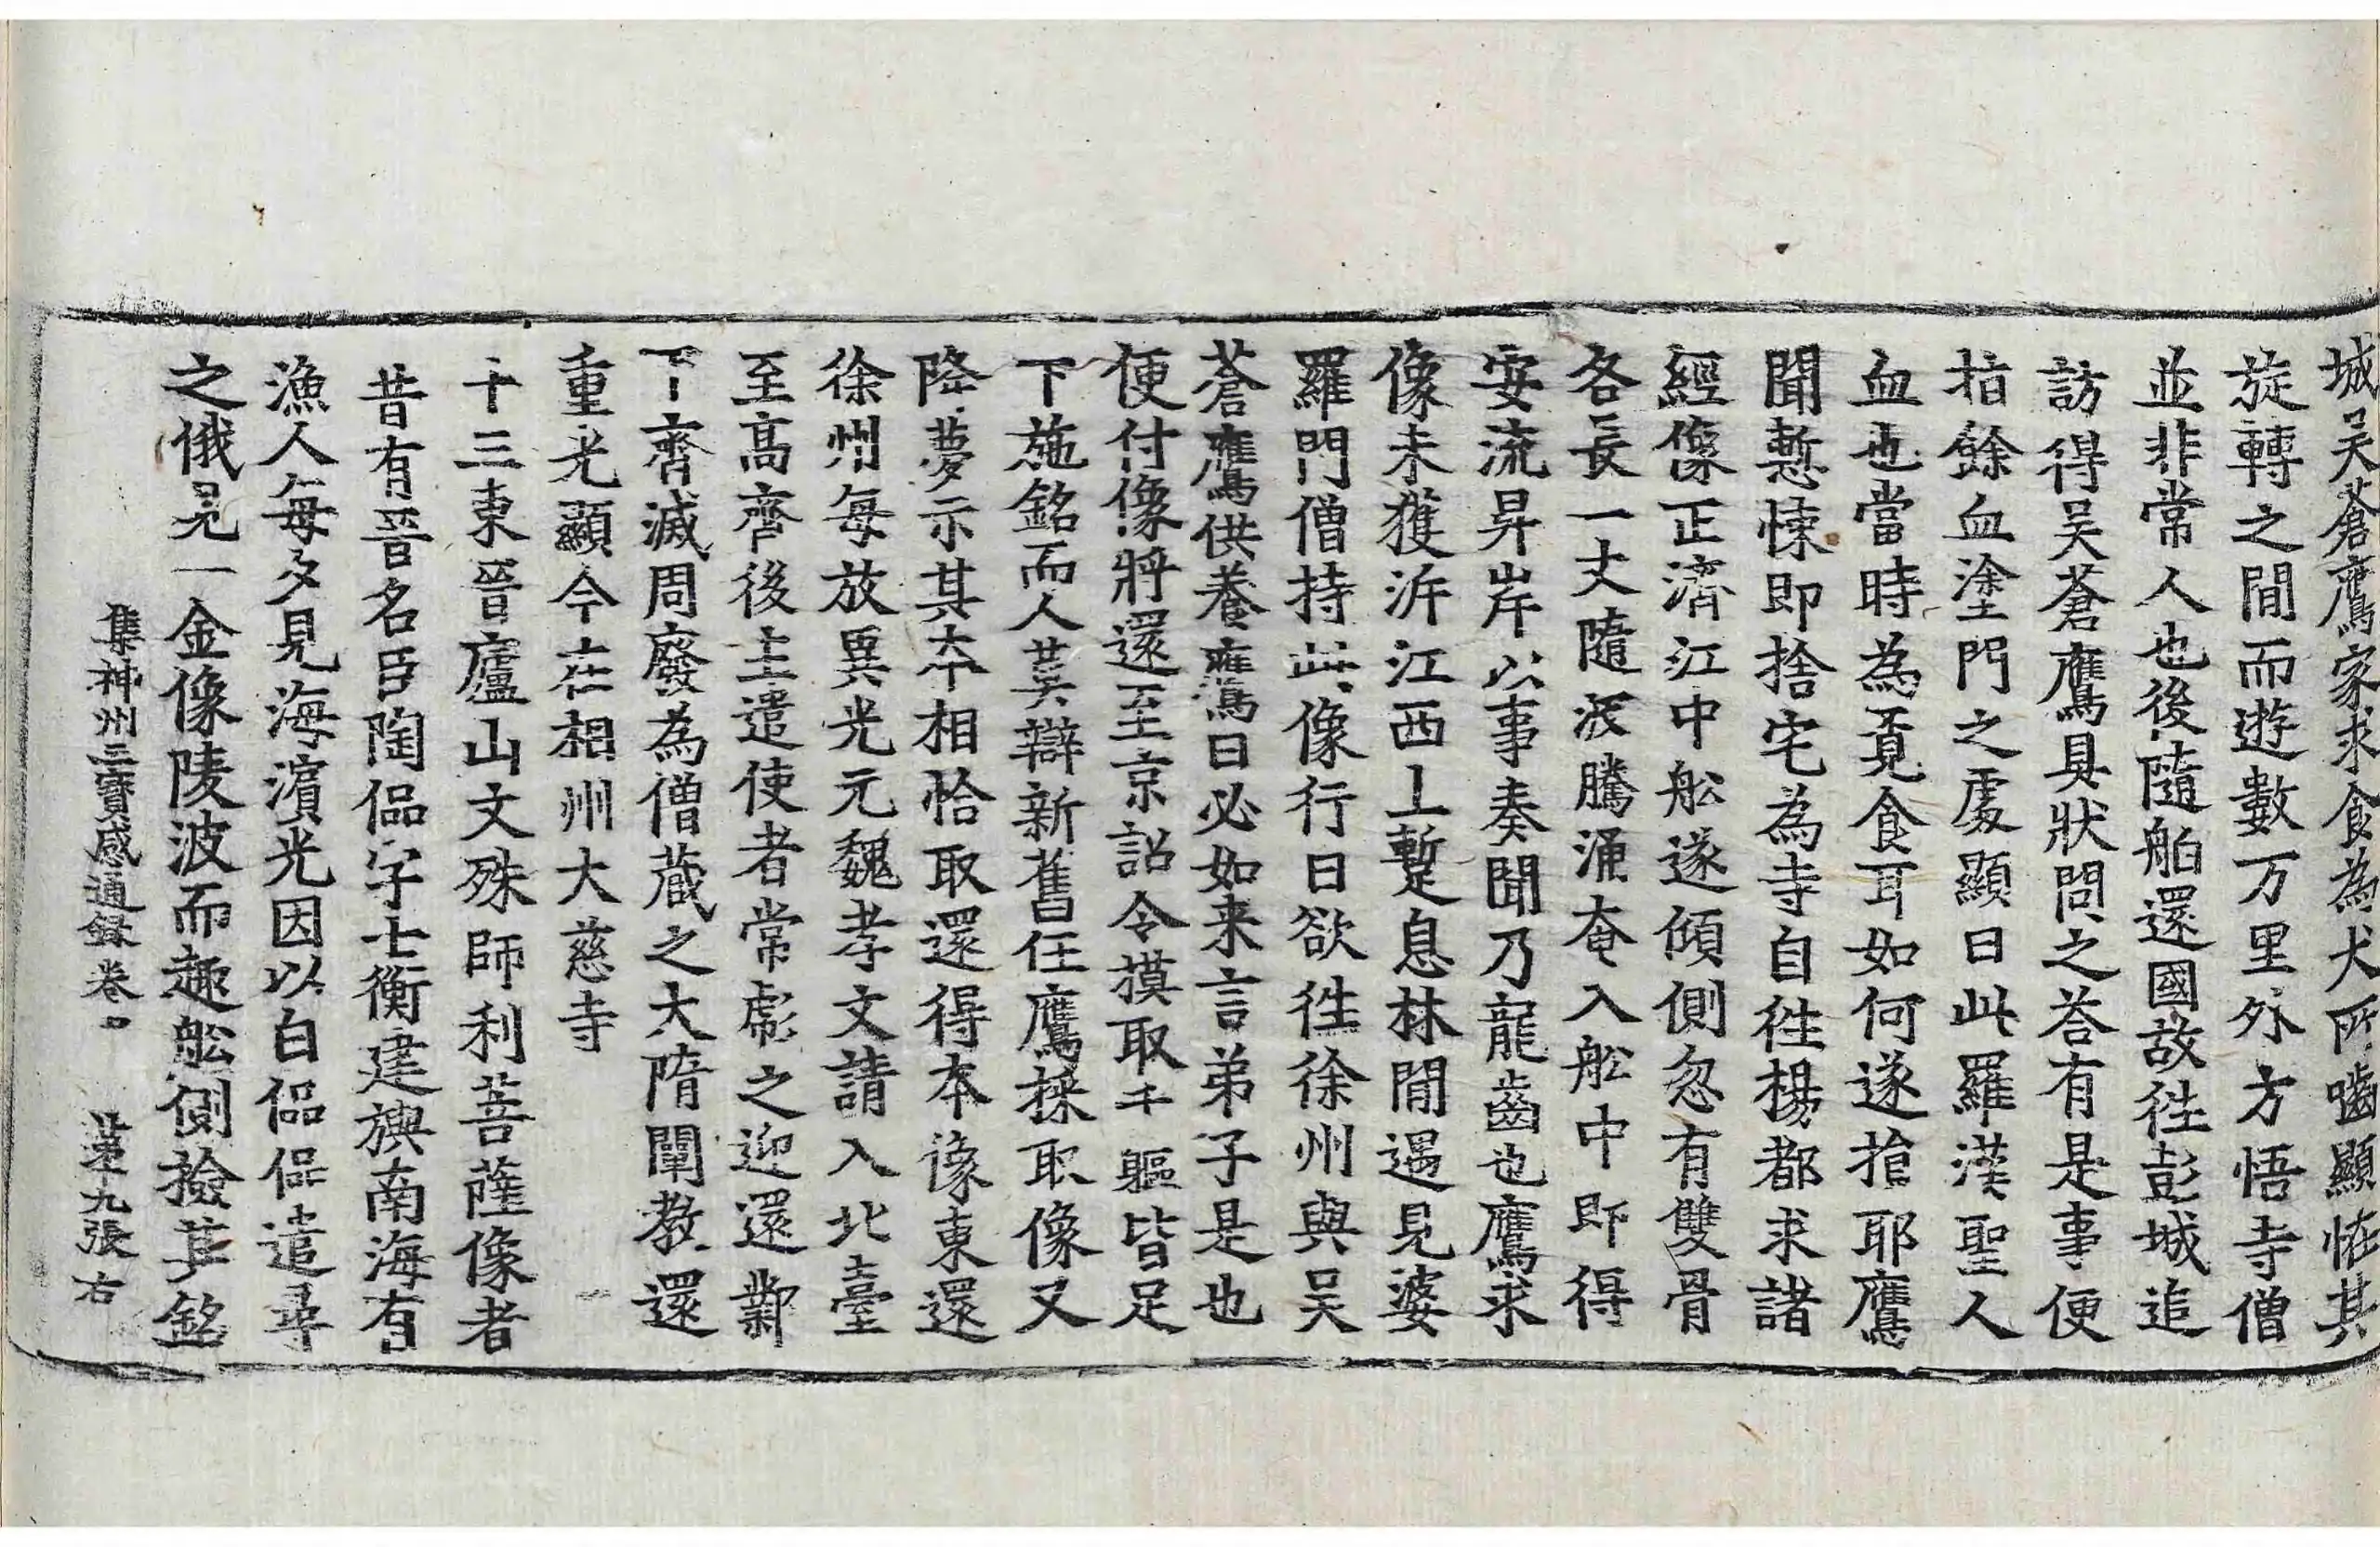 城吴蒼鷹家求食為犬所嚙顯恠其
旋轉之間而遊數万里外方悟寺僧
並非常人也後隨舶還國故徃彭城追
訪得吴蒼鷹具狀問之荅有是事便
指餘血塗門之處顯曰此羅漢聖人
血也當時為覓食耳如何遂損耶鷹
聞慙悚即捨宅為寺自徃楊都求諸
經像正濟江中舩遂傾側忽有雙骨
各長一丈隨波騰涌奄入舩中即得
安流昇岸以事奏聞乃龍齒也鷹求
像未獲泝江西上暫息林間遇見婆
羅門僧持此像行曰欲徃徐州與吴
蒼鷹供養鷹曰必如来言弟子是也
便付像將還至京詔令摸取千軀皆足
下施銘而人莫辯新舊任鷹採取像又
降夢示其本相恰取還得本像東還
徐州每放異光元魏孝文請入北臺
至髙齊後主遣使者常彪之迎還鄴
下齊滅周廢為僧藏之大隋闡教還
重光顯今在相州大慈寺
十三東晉廬山文殊師利菩薩像者
昔有晉名臣陶侃字士衡建旟南海有
漁人每夕見海濱光因以白侃侃遣尋
之俄見一金像陵波而趣舩側撿其銘
集神州三寶感通録卷中　第九張　右